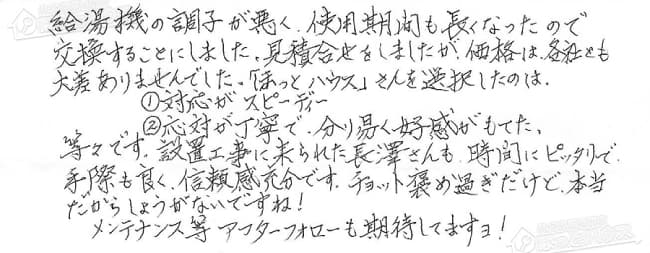 給湯機の調子が悪く、使用期間も長くなったので
交換することにしました。見積合せをしましたが、価格は、各社とも
大差ありませんでした。「ほっとハウス」さんを選択したのは、
①対応がスピーディー
②応対が丁寧で、分り易く好感がもてた、
等々です。設置工事に来られた長澤さんも、時間にピッタリで、
手際も良く、信頼感充分です。チョット褒め過ぎだけど、本当
だからしょうがないですね!
メンテナンス等アフターフォローも期待してますヨ!